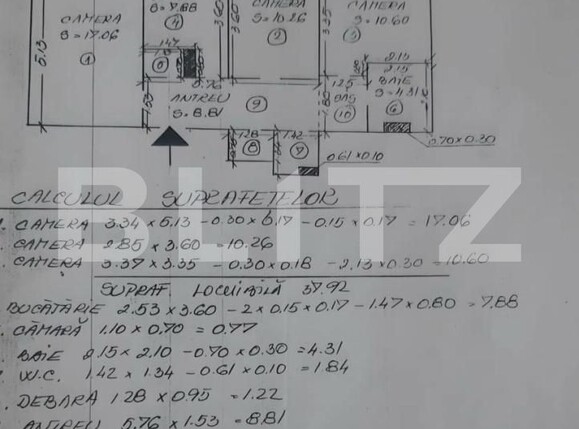 CAMERA
S=17.06
1
5.13
S=7.88
4
3.60
3.60
CAMERA
S=10.26
2
3.35
CAMERA
S=10.60
3
1.47
5
5.76
ANTREU
S=8.81
1.53
9
1.25
1.80
BAIE
S=4.31
6
2.15
2.15
10
1.28
8
1.42
7
0.61x0.10
0.70x0.30
BLITZ
CALCULUL SUPRAFETELOR
CAMERA 3.34 x 5.13 - 0.30 x 0.17 - 0.15 x 0.17 = 17.06
CAMERA 2.85 x 3.60 = 10.26
CAMERA 3.37 x 3.35 - 0.30 x 0.18 - 2.13 x 0.30 = 10.60
SUPRAF. LOCUIBILĂ 37.92
BUCĂTĂRIE 2.53 x 3.60 - 2 x 0.15 x 0.17 - 1.47 x 0.80 = 7.88
CĂMARĂ 1.10 x 0.70 = 0.77
BAIE 2.15 x 2.10 - 0.70 x 0.30 = 4.31
W.C. 1.42 x 1.34 - 0.61 x 0.10 = 1.84
DEBARA 1.28 x 0.95 = 1.22
ANTREU 5.76 x 1.53 = 8.81